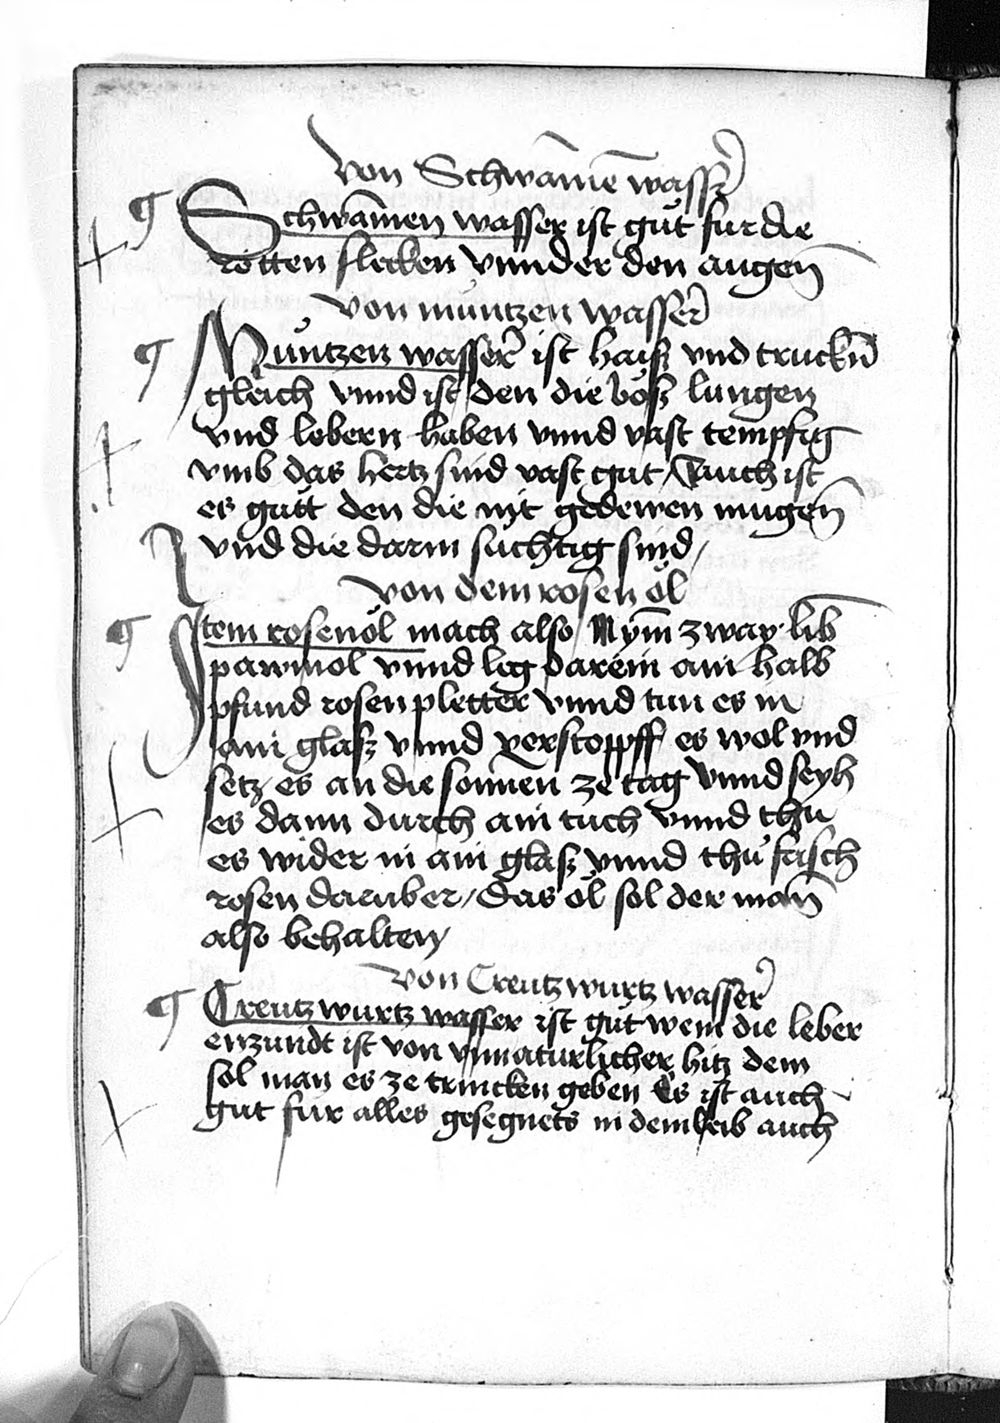 Von Schwām̄e wasser
¶ Schwāmen wasser ist gůt fur die
rotten flecken vnnder den augen̄
Von můntzen wasser
¶ Můntzen wasser ist haisz vnd truckn̄
gleich vnnd ist den die bösz lungen
vnd lebern haben vnnd vast tempfig
vmb das hertz sind vast gut / Auch ist
es gůtt den die nit gedewen mugen̄
vnd die darm suchtig sind /
Von dem rosen öl
¶ Item rosenöl mach also Nym̄ zway lib̄
pawmol vnnd leg darein ain halb
pfund rosen pletter vnnd tun es in
ain glasz vnnd verstopff es wol vnd
setz es an die sonnen ze tag vnnd seyh
es dann durch ain tuch vnnd thu
es wider in ain glasz vnnd thů frisch
rosen daruber / das öl sol der man̄
also behalten /
Von Creutzwurtz wasser
¶ Creutzwurtz wasser ist gůt wem die leber
enzundt ist von vnnaturlicher hitz dem
sol man es ze trincken geben Es ist auch
gut fur alles gesegnets in dem leib auch